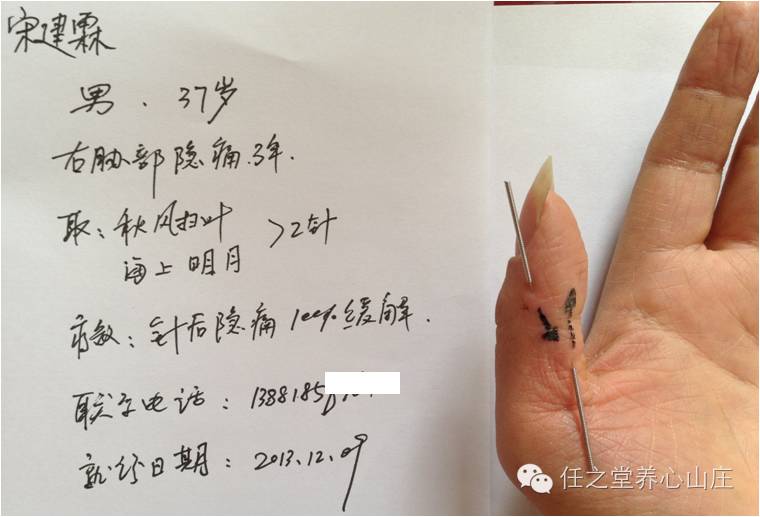 宋建霖
男、37岁
右胁部隐痛3年.
取：秋风扫叶
海上明月
>2针
疗效：针后隐痛100%缓解.
联系电话：1388185
就诊日期：2013.12.09
任之堂养心山庄